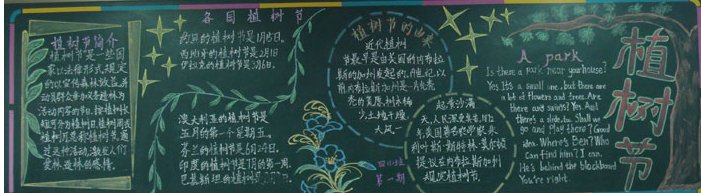 植树节简介
植树节是一些国
家以法律形式规定
的以宣传森林效益,并
动员群众参加义务植树为
活动内容的节日。按植树长
短可分为植树日、植树周或
植树月,总称植树节。通
过这种活动,激发人们
爱林、造林的感情。
各国植树节
约旦的植树节是1月15日。
西班牙的植树节是2月1日
伊拉克的植树节是3月6日。
澳大利亚的植树节是
五月的第一个星期五。
芬兰的植树节是6月24日。
印度的植树节是7月的第一周。
巴基斯坦的植树
植树节的由来
近代植树
节最早是由美国的内布拉
斯加州发起的。19世纪以
前,内布拉斯加州是一片光秃
秃的荒原,树木稀
少,土地干燥,
大风一
起,黄沙满
天,人民深受其害。1872
年,美国著名农学家朱
利叶斯·斯特林·莫尔顿
提议在内布拉斯加州
规定植树节。
第一期
A park
Is there a park near your house?
Yes. It's a small one, but there are
a lot of flowers and trees. Are
there and swings? Yes. And
there's a slide, too. Shall we
go and play there? Good
idea. Where's Ben? Who
can find him? I can.
He's behind the blackboard
You're right.
植树节